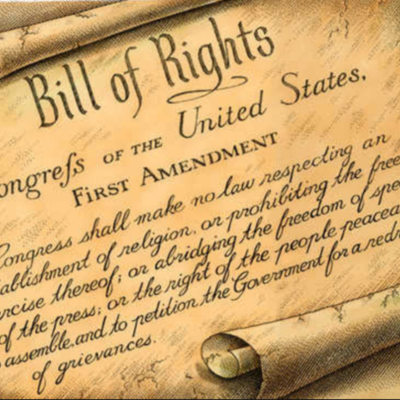 Bill of Rights
ongreſs OF THE United States.
FIRST AMENDMENT
Congress shall make no law respecting an
ablishment of religion, or prohibiting the free
ercise thereof; or abridging the freedom of spe
of the press; or the right of the people peacea
o assemble, and to petition the Government for a redr
of grievances.